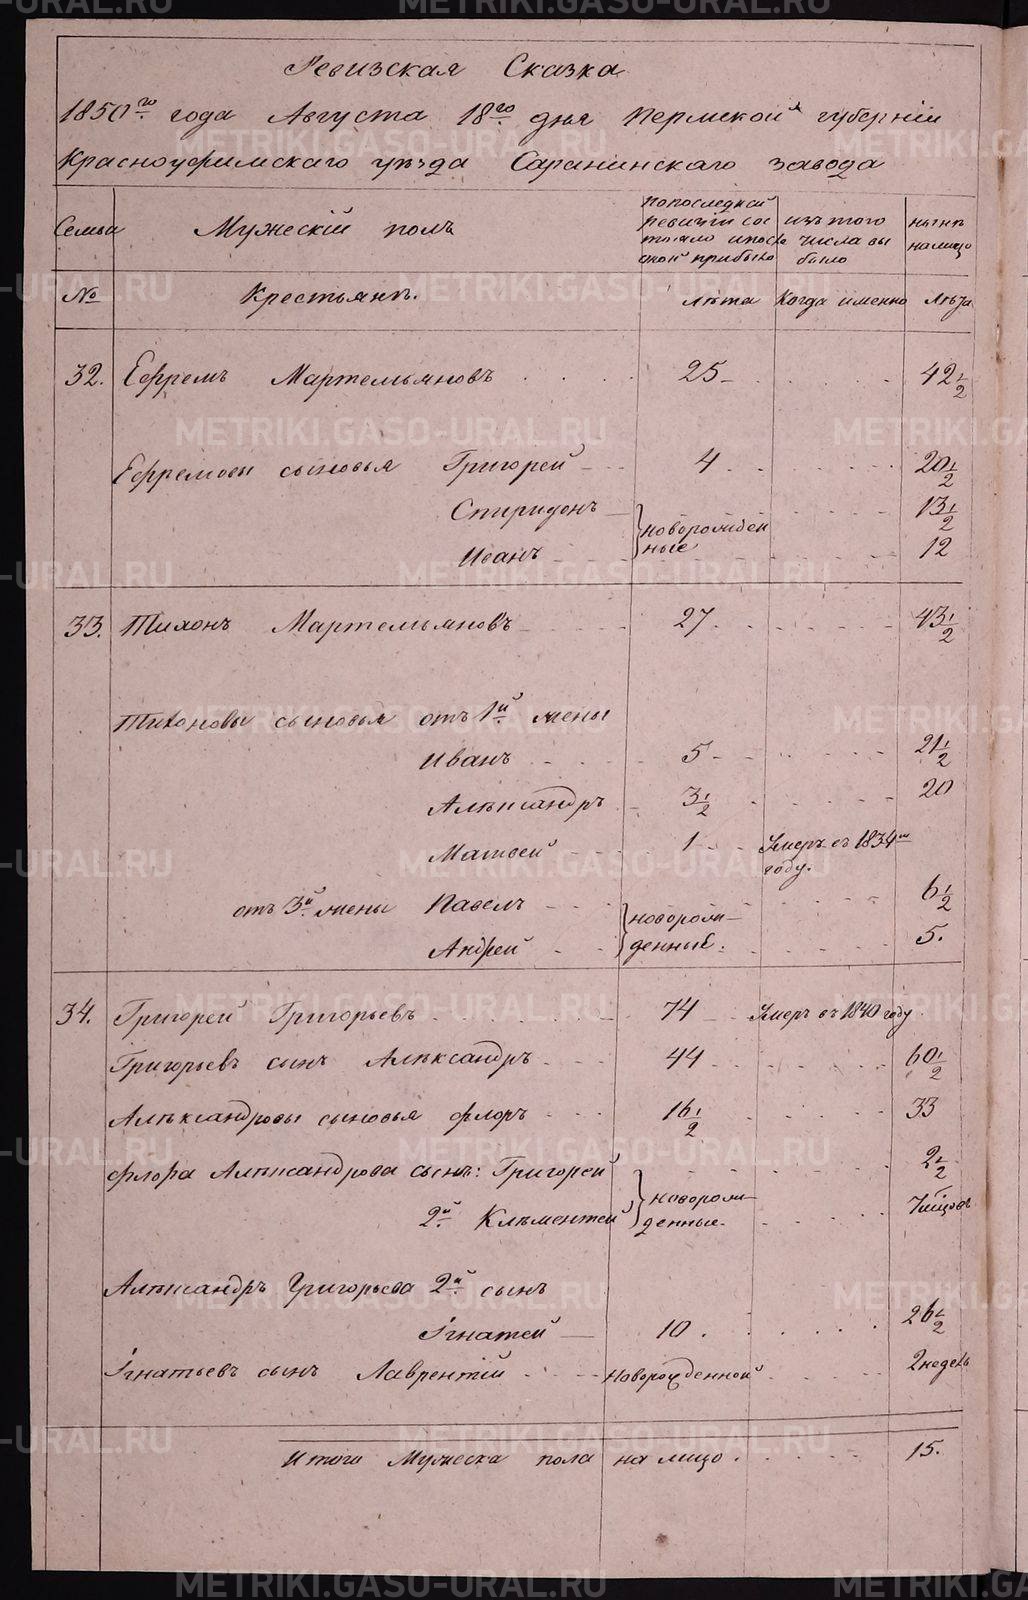 Ревизская Сказка
1850го года Августа 18го дня Пермской губернiи
Красноуфимскаго уѣзда Саранинскаго завода
Семьи Мужескiй полъ попоследней ревизiи сос тояло ипосѣ оной прибыло изъ того числа вы было нынѣ налицо
№ Крестьянъ. Лѣта Когда именно Лѣта
32. Ефремъ Мартемьяновъ 25 42 1/2
Ефремовы сыновья Григорей 4 20 1/2
Спиридонъ новорожден 13 1/2
Иванъ ные 12
33. Тихонъ Мартемьяновъ 27 43 1/2
Тихоновы сыновья отъ 1й жены
Иванъ 5 21 1/2
Алѣксандръ 3 1/2 20
Матвей 1 Умеръ въ 1834м
году.
отъ 3й жены Павелъ новорож- 6 1/2
Андрей денные. 5.
34. Григорей Григорьевъ 74 Умеръ въ 1840 году
Григорьевъ сынъ Алѣксандръ 44 60 1/2
Алѣксандровы сыновья флоръ 16 1/2 33
флора Алѣксандрова сынъ: Григорей новорож- 2 1/2
2й Клѣментей денные. 7 мѣсѣцовъ
Алѣксандръ Григорьева 2й сынъ
Iгнатей 10. 26 1/2
Iгнатьевъ сынъ Лаврентiй новорожденной 2 недѣль
Итого Мужеска пола на лицо 15.
METRIKI.GASO-URAL.RU